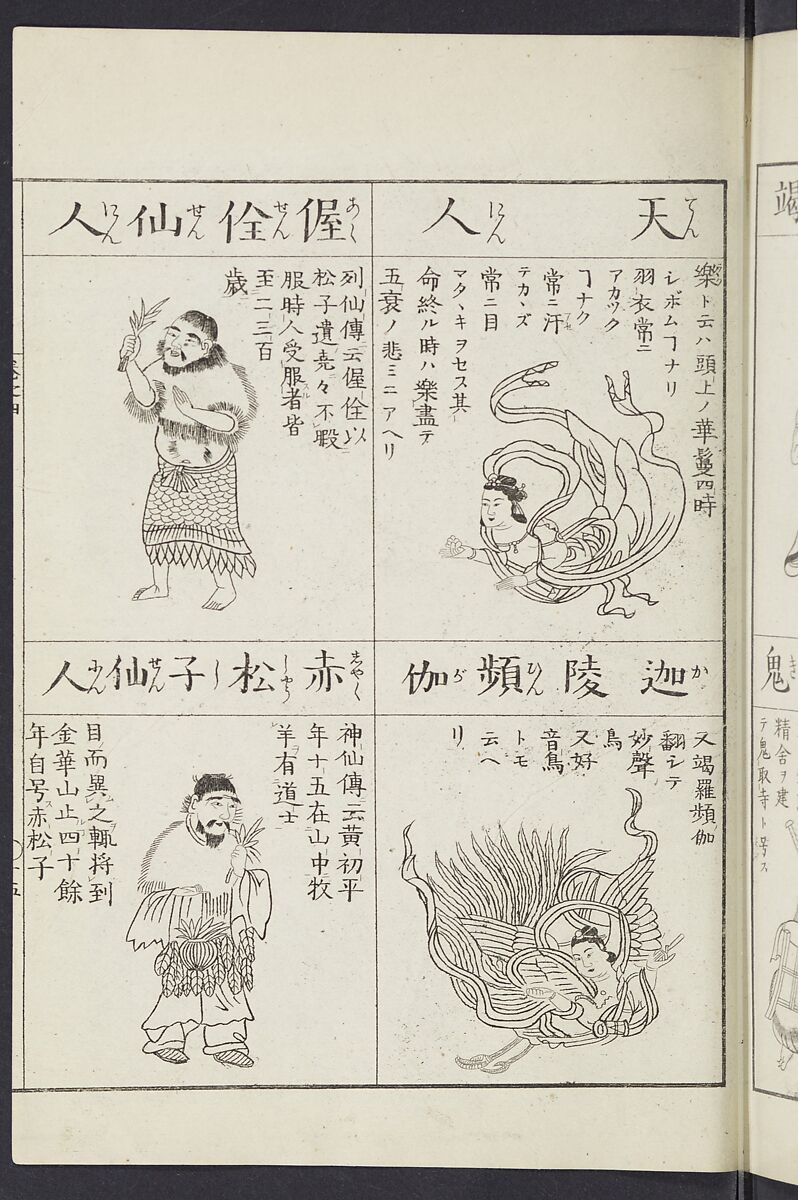 天人
てん にん
樂ト云ハ頭上ノ華鬘四時
シボムヿナリ
羽衣常ニ
アカツク
ヿナク
常ニ汗
テカヽズ
常ニ目
マタヽキヲセス其
命終ル時ハ樂盡テ
五衰ノ悲ミニアヘリ
偓佺仙人
あく せん せん にん
列仙傳云偓佺以
松子遺堯々不暇
服時人受服者皆
至二三百
歳
迦陵頻伽
か びん が
又竭羅頻伽
翻シテ
妙聲
鳥
又好
音鳥
トモ
云ヘ
リ
赤松子仙人
しやく しやう し せん にん
神仙傳云黄初平
年十五在山中牧
羊有道士
目而異之輒将到
金華山止四十餘
年自号赤松子
鬼
き
精舎ヲ建
テ鬼取寺ト号ス